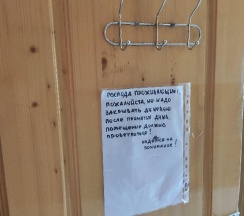 ГОСПОДА ПРОЖИВАЮЩИЕ!
ПОЖАЛУЙСТА, НЕ НАДО
ЗАКРЫВАТЬ ДУШЕВУЮ
ПОСЛЕ ПРИНЯТИЯ ДУША.
ПОМЕЩЕНИЕ ДОЛЖНО
ПРОВЕТРИТСЯ!
НАДЕЕМСЯ НА
ПОНИМАНИЕ!